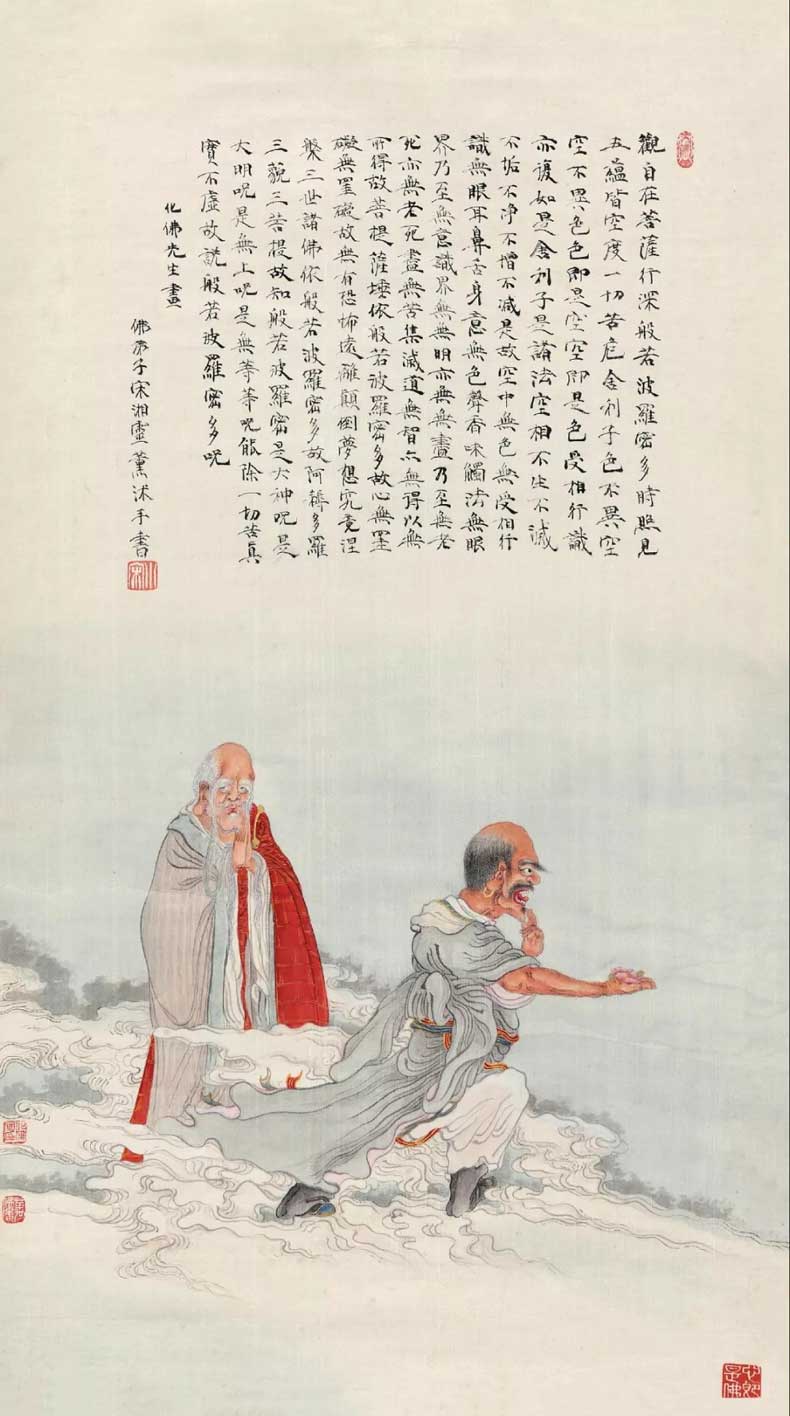 觀自在菩薩行深般若波羅密多時照見
五蘊皆空度一切苦厄舍利子色不異空
空不異色色即是空空即是色受相行識
亦復如是舍利子是諸法空相不生不滅
不垢不淨不增不減是故空中無色無受相行
識無眼耳鼻舌身意無色聲香味觸法無眼
界乃至無意識界無無明亦無無盡乃至無老
死亦無老死盡無苦集滅道無智亦無得以無
所得故菩提薩埵依般若波羅密多故心無罣
礙無罣礙故無有恐怖遠離顛倒夢想究竟涅
槃三世諸佛依般若波羅密多故阿耨多羅
三藐三菩提故知般若波羅密是大神呪是
大明呪是無上呪是無等等呪能除一切苦真
實不虛故說般若波羅密多呪
化佛先生畫
佛弟子宋湘靈薰沐手書